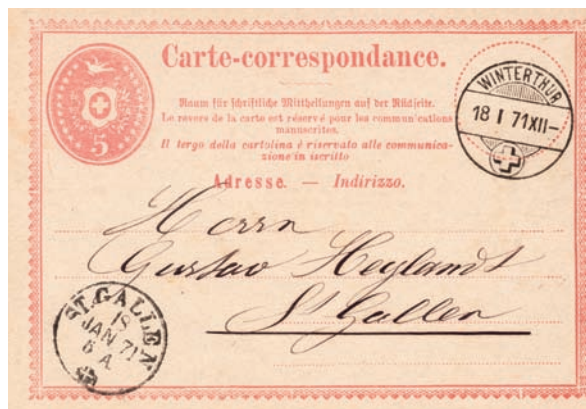 Carte-correspondance.
5
Raum für schriftliche Mittheilungen auf der Rückseite.
Le revers de la carte est réservé pour les communications
manuscrites.
Il tergo della cartolina è riservato alle communica-
zione in iscritto
Adresse. — Indirizzo.
WINTERTHUR
18 I 71XII-
Herrn
Gustav Heylandt
St Gallen
ST. GALLEN
18
JAN 71
6 A